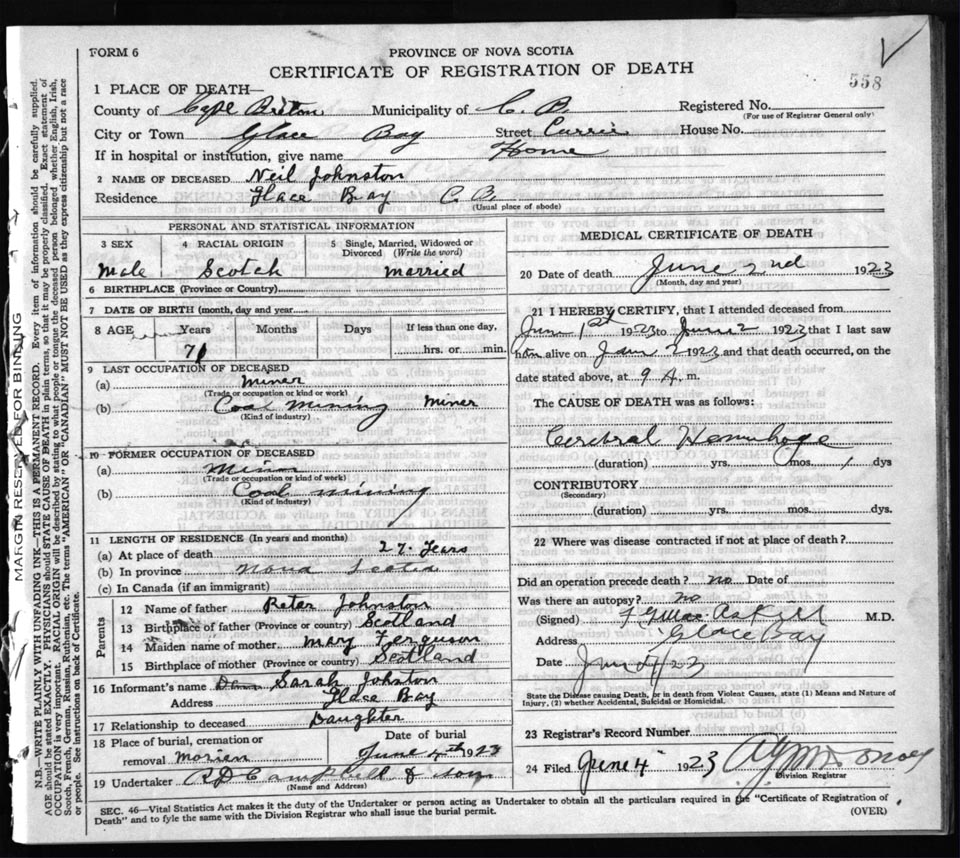 FORM 6
PROVINCE OF NOVA SCOTIA
CERTIFICATE OF REGISTRATION OF DEATH
558
1 PLACE OF DEATH—
County of Cape Breton Municipality of C. B. Registered No.
(For use of Registrar General only)
City or Town Glace Bay Street Currie House No.
If in hospital or institution, give name Home
2 NAME OF DECEASED Neil Johnston
Residence Glace Bay C. B.
(Usual place of abode)
PERSONAL AND STATISTICAL INFORMATION
3 SEX 4 RACIAL ORIGIN 5 Single, Married, Widowed or Divorced (Write the word)
Male Scotch married
6 BIRTHPLACE (Province or Country)
7 DATE OF BIRTH (month, day and year)
8 AGE Years Months Days If less than one day,
71 hrs. or min.
9 LAST OCCUPATION OF DECEASED
(a) Miner
(Trade or occupation or kind or work)
(b) Coal Mining Miner
(Kind of industry)
10 FORMER OCCUPATION OF DECEASED
(a) Miner
(Trade or occupation or kind of work)
(b) Coal mining
(Kind of industry)
11 LENGTH OF RESIDENCE (In years and months)
(a) At place of death 27 Years
(b) In province Nova Scotia
(c) In Canada (if an immigrant)
Parents
12 Name of father Peter Johnston
13 Birthplace of father (Province or country) Scotland
14 Maiden name of mother Mary Ferguson
15 Birthplace of mother (Province or country) Scotland
16 Informant's name Sarah Johston
Address Glace Bay
17 Relationship to deceased Daughter
18 Place of burial, cremation or removal Morien Date of burial June 4th 1923
19 Undertaker A D Campbell & Son
(Name and Address)
MEDICAL CERTIFICATE OF DEATH
20 Date of death June 2nd 1923
(Month, day and year)
21 I HEREBY CERTIFY, that I attended deceased from
June 1st 1923 to June 2 1923 that I last saw
him alive on June 2 1923 and that death occurred, on the
date stated above, at 9 A. m.
The CAUSE OF DEATH was as follows:
Cerebral Hemorhage
(duration) yrs. mos. 1 dys
CONTRIBUTORY
(Secondary)
(duration) yrs. mos. dys.
22 Where was disease contracted if not at place of death?
Did an operation precede death? no Date of
Was there an autopsy? no
(Signed) M.D.
Address Glace Bay
Date June 4/23
State the Disease causing Death, or in death from Violent Causes, state (1) Means and Nature of
Injury, (2) whether Accidental, Suicidal or Homicidal.
23 Registrar's Record Number
24 Filed June 4 1923
Division Registrar
SEC. 46—Vital Statistics Act makes it the duty of the Undertaker or person acting as Undertaker to obtain all the particulars required in the "Certificate of Registration of
Death" and to fyle the same with the Division Registrar who shall issue the burial permit. (OVER)
MARGIN RESERVED FOR BINDING
N.B.—WRITE PLAINLY WITH UNFADING INK—THIS IS A PERMANENT RECORD. Every item of information should be carefully supplied.
AGE should be stated EXACTLY. PHYSICIANS should STATE CAUSE OF DEATH in plain terms, so that it may be properly classified. Exact statement of
OCCUPATION is very important. RACIAL ORIGIN will be described by stating to what people or tongue the deceased person belonged whether English, Irish,
Scotch, French, German, Russian, Ruthenian, etc. The terms "AMERICAN" OR "CANADIAN" MUST NOT BE USED as they express citizenship but not a race
or people. See instructions on back of Certificate.